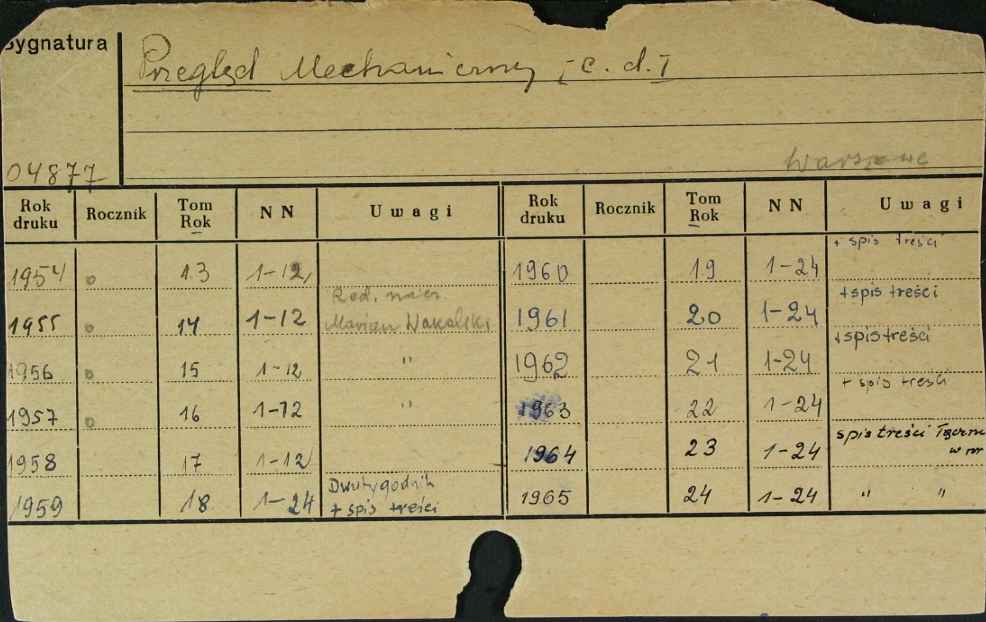 Sygnatura
Przegląd Mechaniczny [c. d.]
04877
Warszawa
Rok druku Rocznik Tom Rok N N Uwagi Rok druku Rocznik Tom Rok N N Uwagi
1954 o 13 1-12 1960 19 1-24 + spis treści
1955 o 14 1-12 Red. nacz. Marian Wakalski 1961 20 1-24 + spis treści
1956 o 15 1-12 " 1962 21 1-24 + spis treści
1957 o 16 1-12 " 1963 22 1-24 + spis treści
1958 17 1-12 1964 23 1-24 spis treści w nr
1959 18 1-24 Dwutygodnik + spis treści 1965 24 1-24 " "